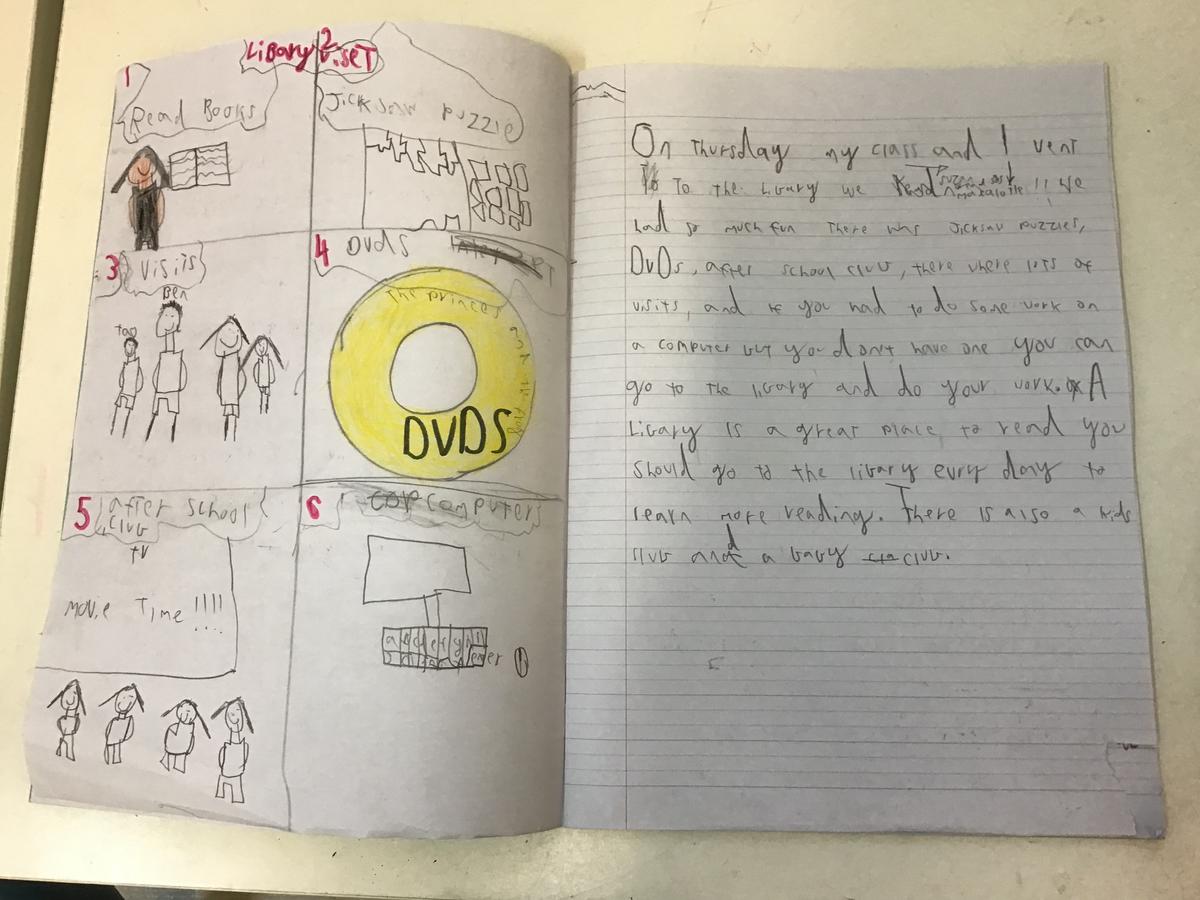 Libary Viset
1
Read Books
2
Jicksaw puzzle
3 Visits
Ben
4 DVDs
The princes and the frog
DVDS
5 after school
club
tv
movie Time !!!!
6 computer
enter
On Thursday my class and I went
To the Libary we Read !! We
had so much fun There was Jicksaw puzzles,
DvDs, after school club, there where lots of
visits, and if you had to do some work on
a computer but you don't have one you can
go to the libary and do your work. A
Libary is a great place to read you
should go to the libary evry day to
learn more reading. There is also a kids
club and a baby club.